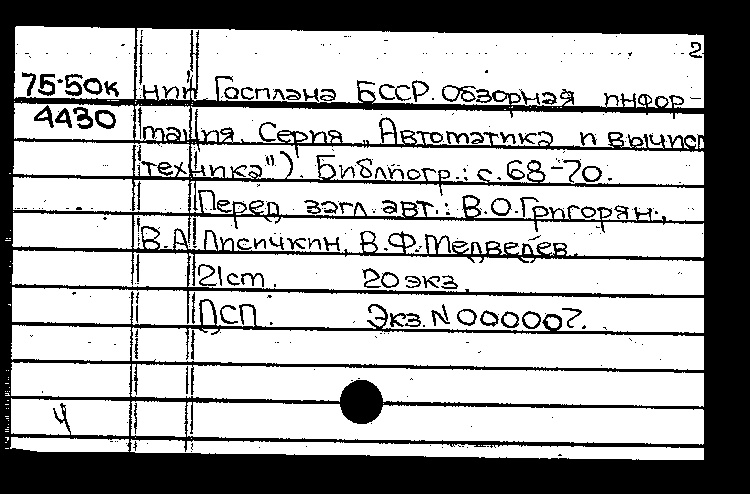 2
75-50к нии Госплана БССР. Обзорная инфор-
4430 мация. Серия „Автоматика и вычисл
техника"). Библиогр.: с. 68-70.
Перед загл. авт.: В.О.Григорян,
В.А.Лисичкин, В.Ф.Медведев.
21см. 20 экз.
ДСП. Экз. N 000007.
Ч